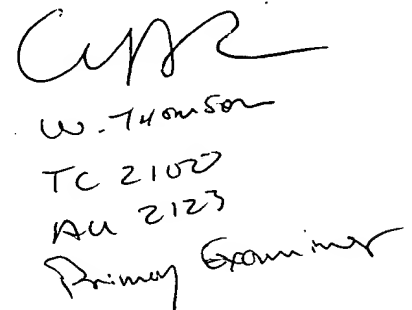 W. Thomson
TC 2100
AU 2123
Primary Examiner